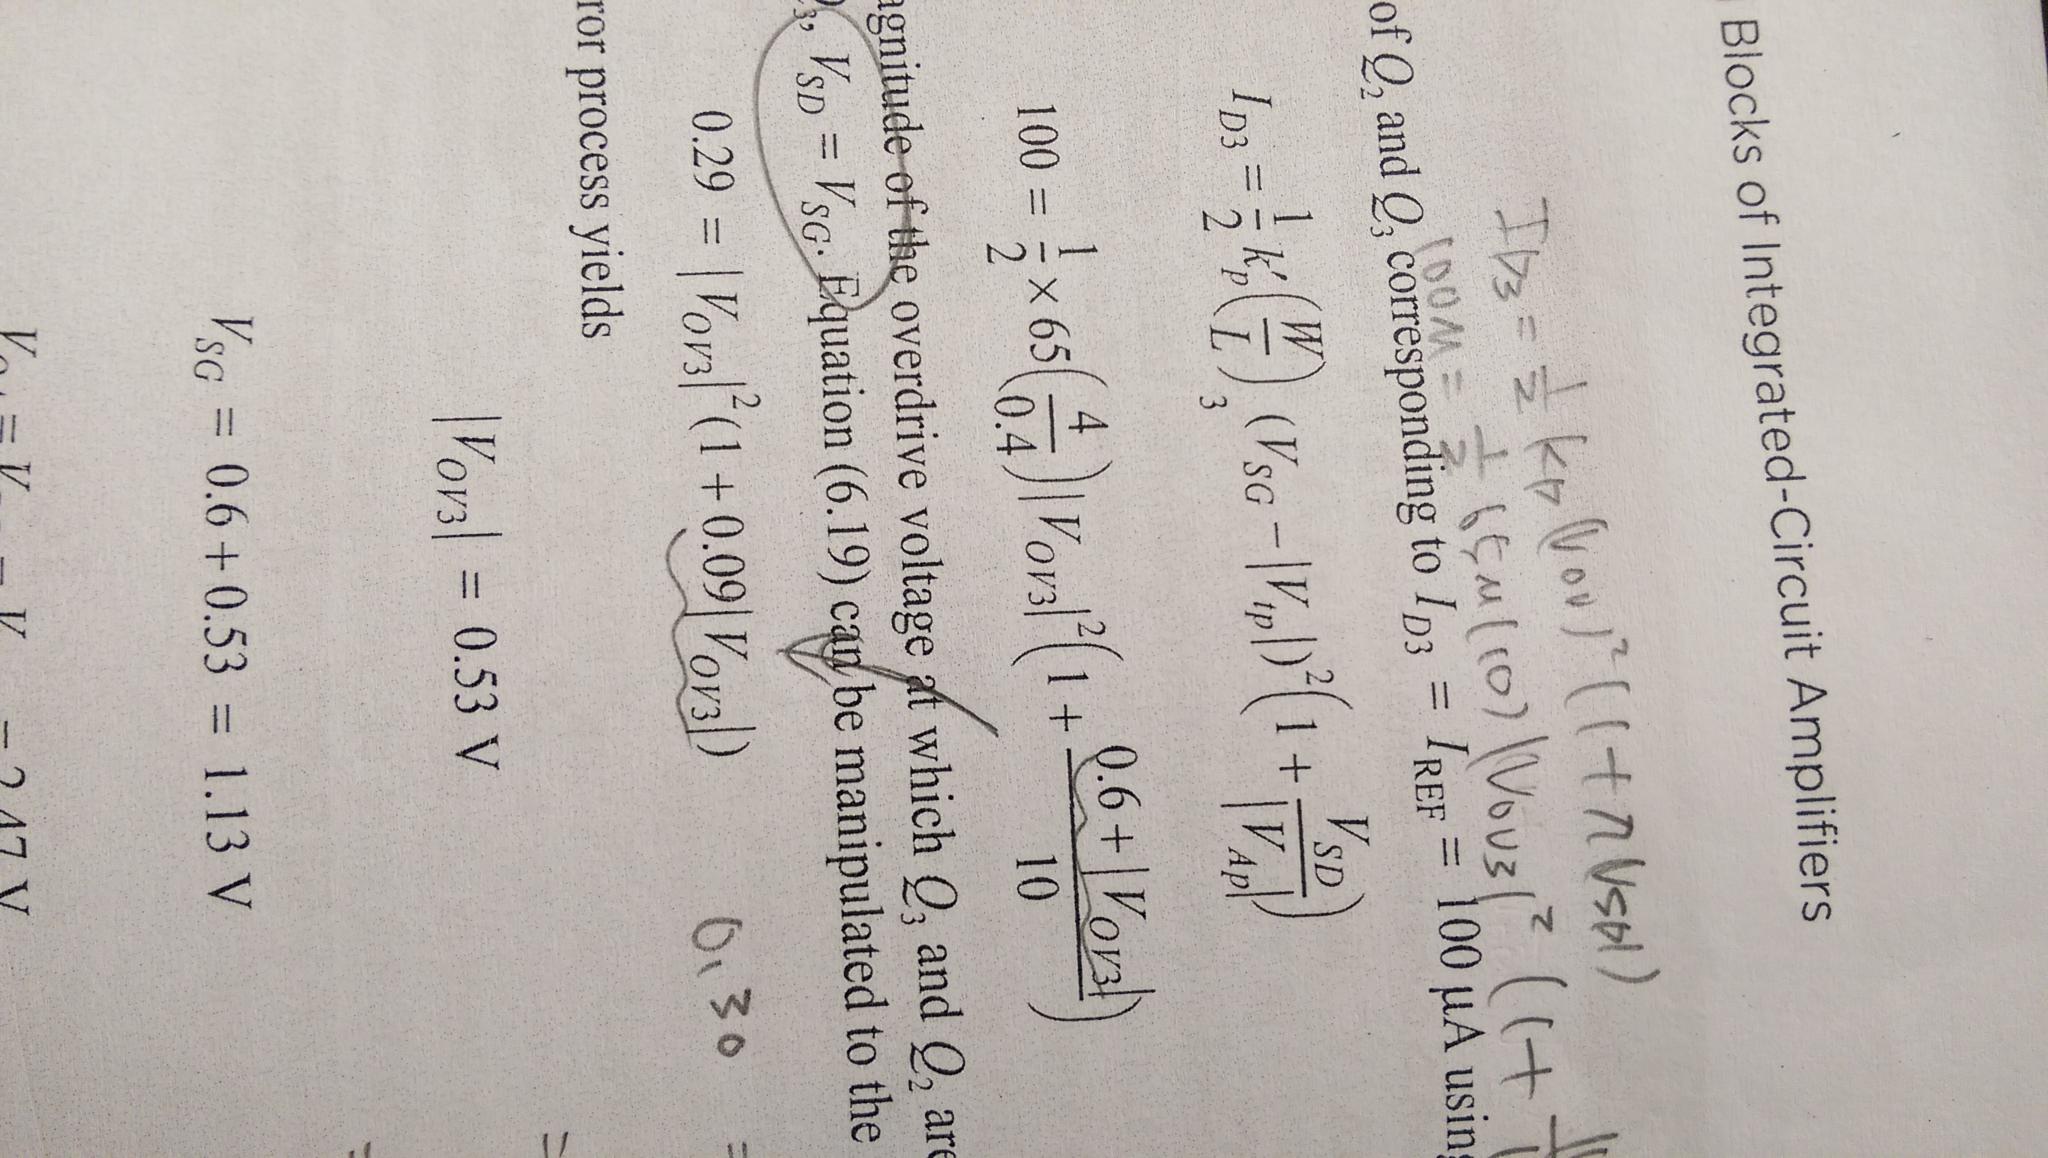 Blocks of Integrated-Circuit Amplifiers
ID3 = 1/2 kp (Vov)² (1 + λ VSD)
100μ = 1/2 65μ (10) |Vov3|² (1 +
of Q₂ and Q₃ corresponding to I_D3 = I_REF = 100 μA using
I_D3 = 1/2 k′_p (W/L)_3 (V_SG − |V_tp|)² (1 + V_SD/|V_Ap|)
100 = 1/2 × 65 (4/0.4) |V_OV3|² (1 + (0.6 + |V_OV3|)/10)
agnitude of the overdrive voltage at which Q₃ and Q₂ are
₃, V_SD = V_SG. Equation (6.19) can be manipulated to the
0.29 = |V_OV3|² (1 + 0.09|V_OV3|) 0.30 =
ror process yields
|V_OV3| = 0.53 V
V_SG = 0.6 + 0.53 = 1.13 V
= 2.47 V